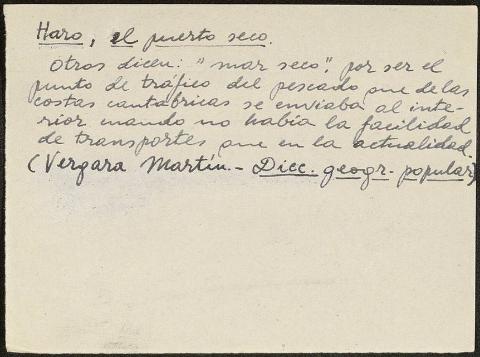 Haro, el puerto seco.
Otros dicen: "mar seco", por ser el
punto de tráfico del pescado que de las
costas cantábricas se enviaba al inte-
rior cuando no había la facilidad
de transportes que en la actualidad.
(Vergara Martín.- Dicc. geogr. popular)